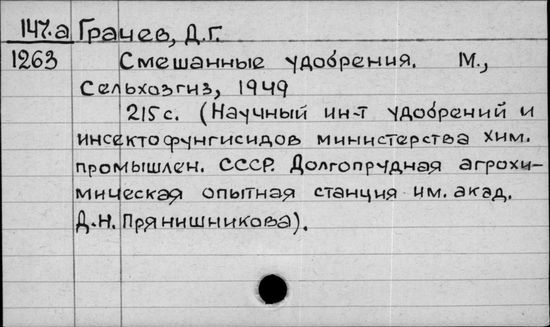 147.а Грачев, Д.Г.
1263 Смешанные удобрения. М.,
Сельхозгиз, 1949
215 с. (Научный ин-т удобрений и
инсектофунгисидов министерства хим.
промышлен. СССР. Долгопрудная агрохи-
мическая опытная станция им. акад.
Д.Н. Прянишникова).